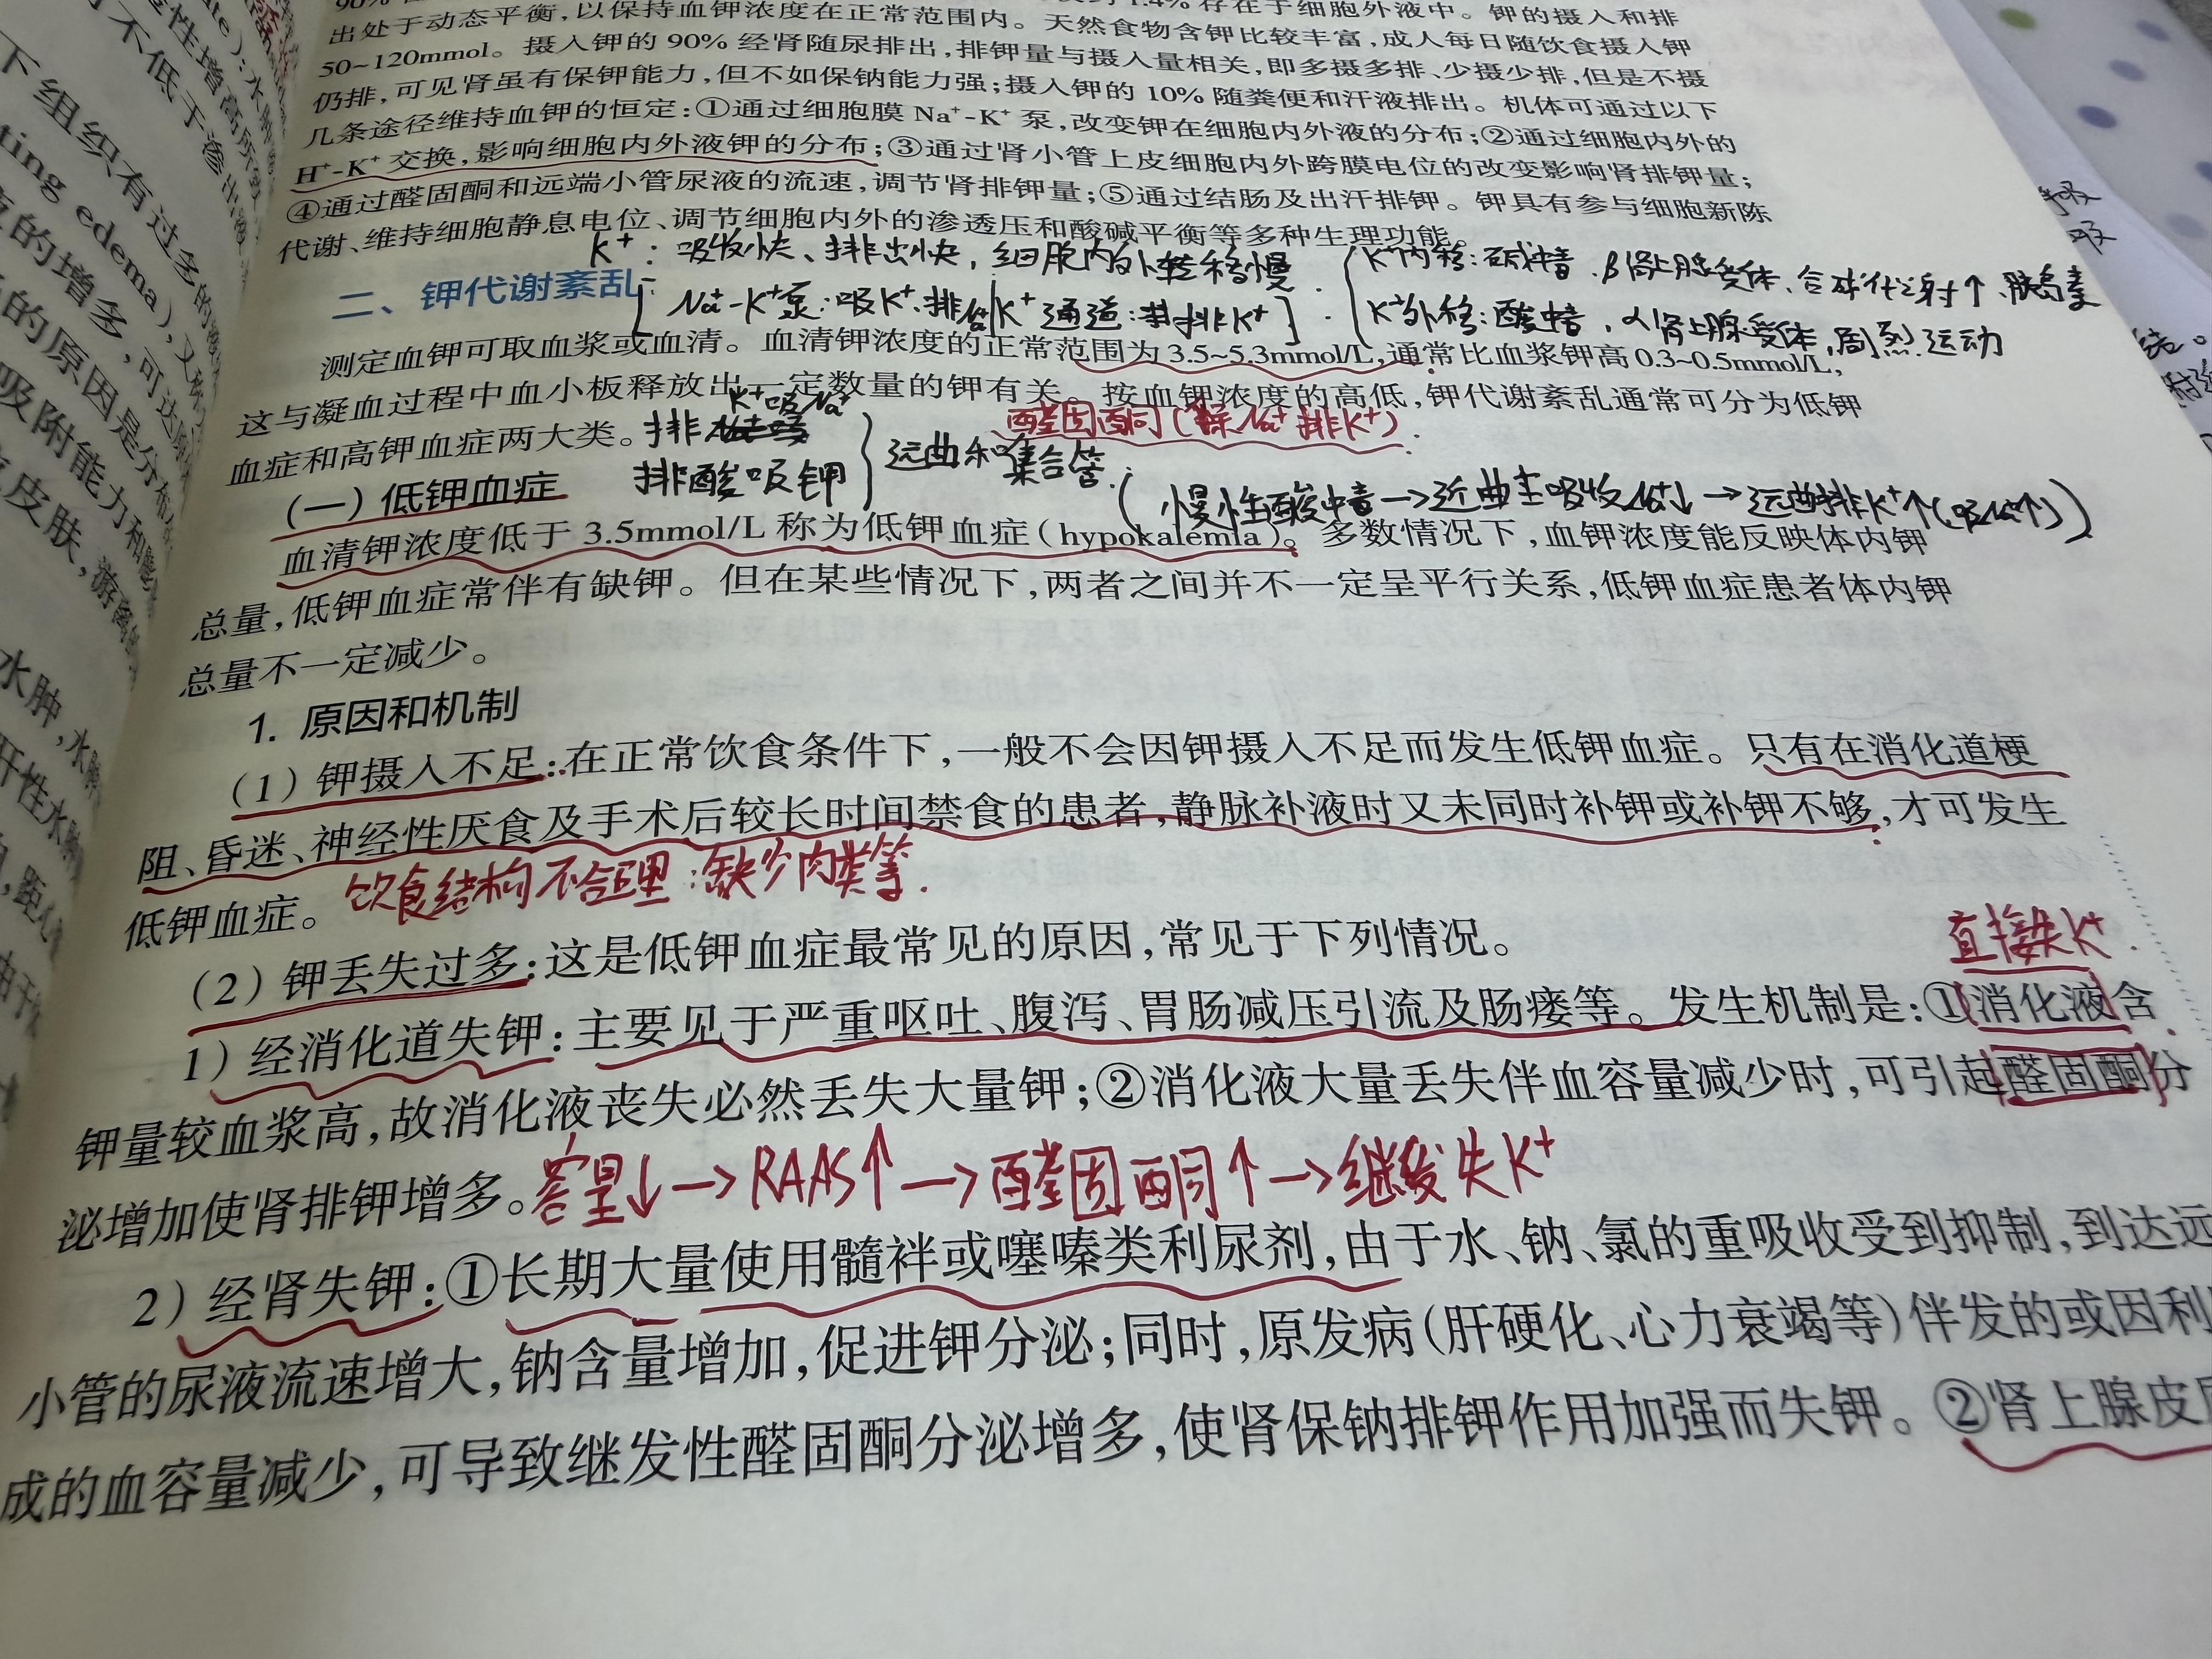 存在于细胞外液中。钾的摄入和排
出处于动态平衡，以保持血钾浓度在正常范围内。天然食物含钾比较丰富，成人每日随饮食摄入钾
50~120mmol。摄入钾的90%经肾随尿排出，排钾量与摄入量相关，即多摄多排、少摄少排，但是不摄
仍排，可见肾虽有保钾能力，但不如保钠能力强；摄入钾的10%随粪便和汗液排出。机体可通过以下
几条途径维持血钾的恒定：①通过细胞膜Na⁺-K⁺泵，改变钾在细胞内外液的分布；②通过细胞内外的
H⁺-K⁺交换，影响细胞内外液钾的分布；③通过肾小管上皮细胞内外跨膜电位的改变影响肾排钾量；
④通过醛固酮和远端小管尿液的流速，调节肾排钾量；⑤通过结肠及出汗排钾。钾具有参与细胞新陈
代谢、维持细胞静息电位、调节细胞内外的渗透压和酸碱平衡等多种生理功能。
K⁺：吸收快、排出快，细胞内外转移慢.
K⁺内移：碱中毒、β肾上腺受体、合成代谢↑、胰岛素
二、钾代谢紊乱
Na⁺-K⁺泵：吸K⁺排 K⁺通道：排K⁺
K⁺外移：酸中毒，α肾上腺受体，剧烈运动
测定血钾可取血浆或血清。血清钾浓度的正常范围为3.5~5.3mmol/L，通常比血浆钾高0.3~0.5mmol/L，
这与凝血过程中血小板释放出一定数量的钾有关。按血钾浓度的高低，钾代谢紊乱通常可分为低钾
血症和高钾血症两大类。
排K⁺吸Na⁺
醛固酮（保Na⁺排K⁺）.
排酸吸钾
远曲和集合管：
（一）低钾血症
（慢性酸中毒→近曲主吸收Na⁺↓→远曲排K⁺↑(吸Na⁺↑)）
血清钾浓度低于3.5mmol/L称为低钾血症（hypokalemia）。多数情况下，血钾浓度能反映体内钾
总量，低钾血症常伴有缺钾。但在某些情况下，两者之间并不一定呈平行关系，低钾血症患者体内钾
总量不一定减少。
1. 原因和机制
（1）钾摄入不足：在正常饮食条件下，一般不会因钾摄入不足而发生低钾血症。只有在消化道梗
阻、昏迷、神经性厌食及手术后较长时间禁食的患者，静脉补液时又未同时补钾或补钾不够，才可发生
低钾血症。
饮食结构不合理：缺少肉类等.
（2）钾丢失过多：这是低钾血症最常见的原因，常见于下列情况。
直接失K⁺.
1）经消化道失钾：主要见于严重呕吐、腹泻、胃肠减压引流及肠瘘等。发生机制是：①消化液含
钾量较血浆高，故消化液丧失必然丢失大量钾；②消化液大量丢失伴血容量减少时，可引起醛固酮分
泌增加使肾排钾增多。
容量↓→RAAS↑→醛固酮↑→继发失K⁺
2）经肾失钾：①长期大量使用髓袢或噻嗪类利尿剂，由于水、钠、氯的重吸收受到抑制，到达远
小管的尿液流速增大，钠含量增加，促进钾分泌；同时，原发病（肝硬化、心力衰竭等）伴发的或因利
成的血容量减少，可导致继发性醛固酮分泌增多，使肾保钠排钾作用加强而失钾。②肾上腺皮